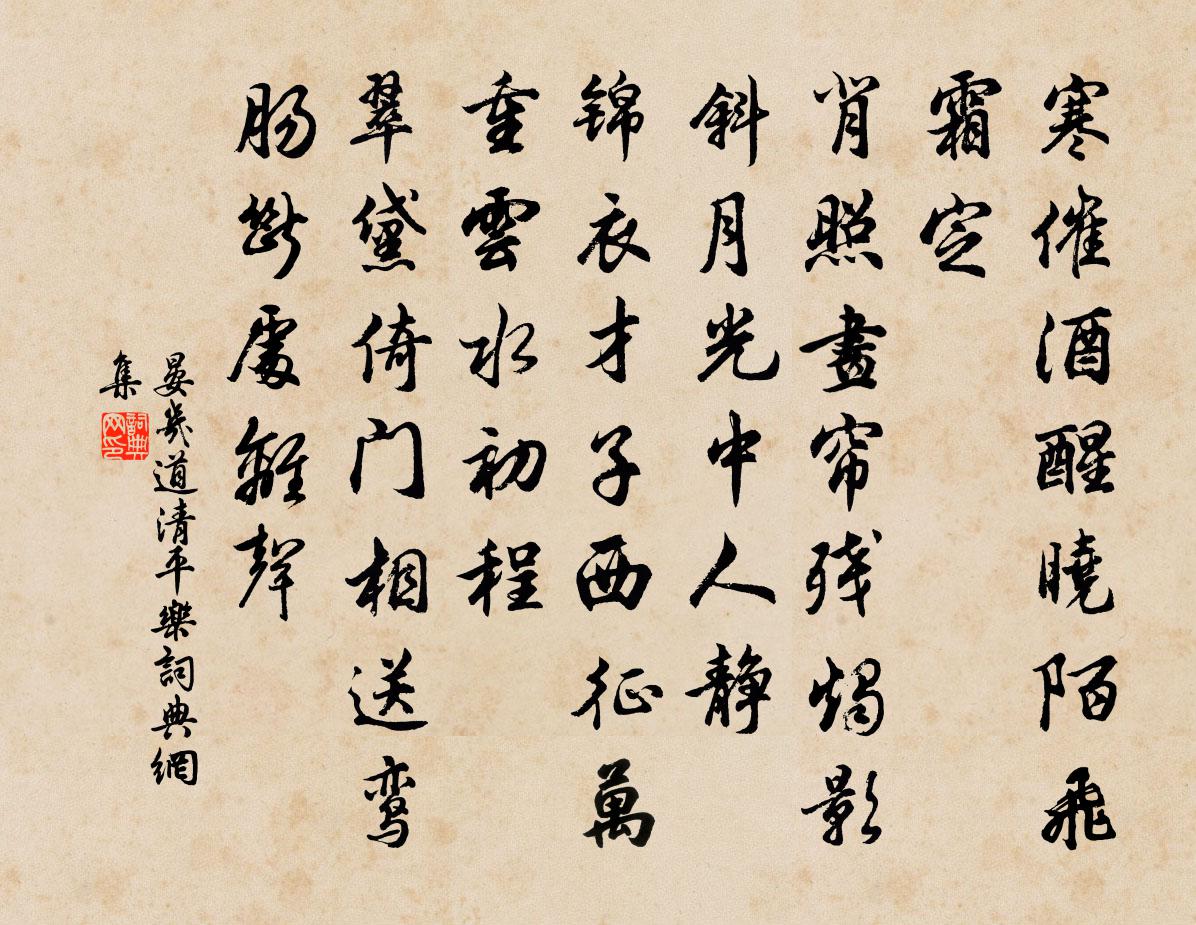 寒催酒醒曉陌飛
霜定
背照畫帘残燭影
斜月光中人静
锦衣才子西征萬
重雲水初程
翠黛倚门相送鸾
肠斷處離聲
晏幾道清平樂詞典網
集
詞典网印